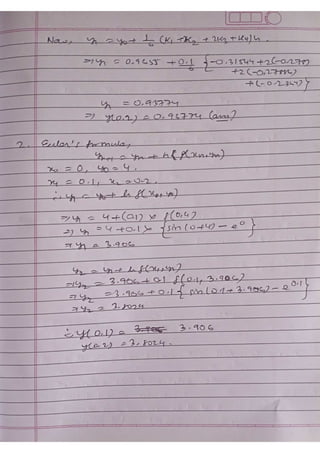 Now, y₁ = y₀ + 1/6 (K₁ + 2K₂ + 2K₃ + K₄) h.
⇒ y₁ = 0.9655 + 0.1/6 {-0.31544 + 2(-0.
+2(-0.
+(-0.2
y₁ = 0.93774
⇒ y(0.2) = 0.93774 (ans)
2. Euler's formula,
yₙ₊₁ = yₙ + h f(xₙ, yₙ)
x₀ = 0, y₀ = 4.
x₁ = 0.1, x₂ = 0.2.
∴ y₁ = y₀ + h f(x₀, y₀)
⇒ y₁ = 4 + (0.1) × f(0,4)
⇒ y₁ = 4 + 0.1 × {sin(0+4) - e⁰}
⇒ y₁ = 3.906
y₂ = y₁ + h f(x₁, y₁)
⇒ y₂ = 3.906 + 0.1 f(0.1, 3.906)
⇒ y₂ = 3.906 + 0.1 { sin(0.1 + 3.906) - e^0.1}
⇒ y₂ = 3.8024
∴ y(0.1) = 3.906
y(0.2) = 3.8024.